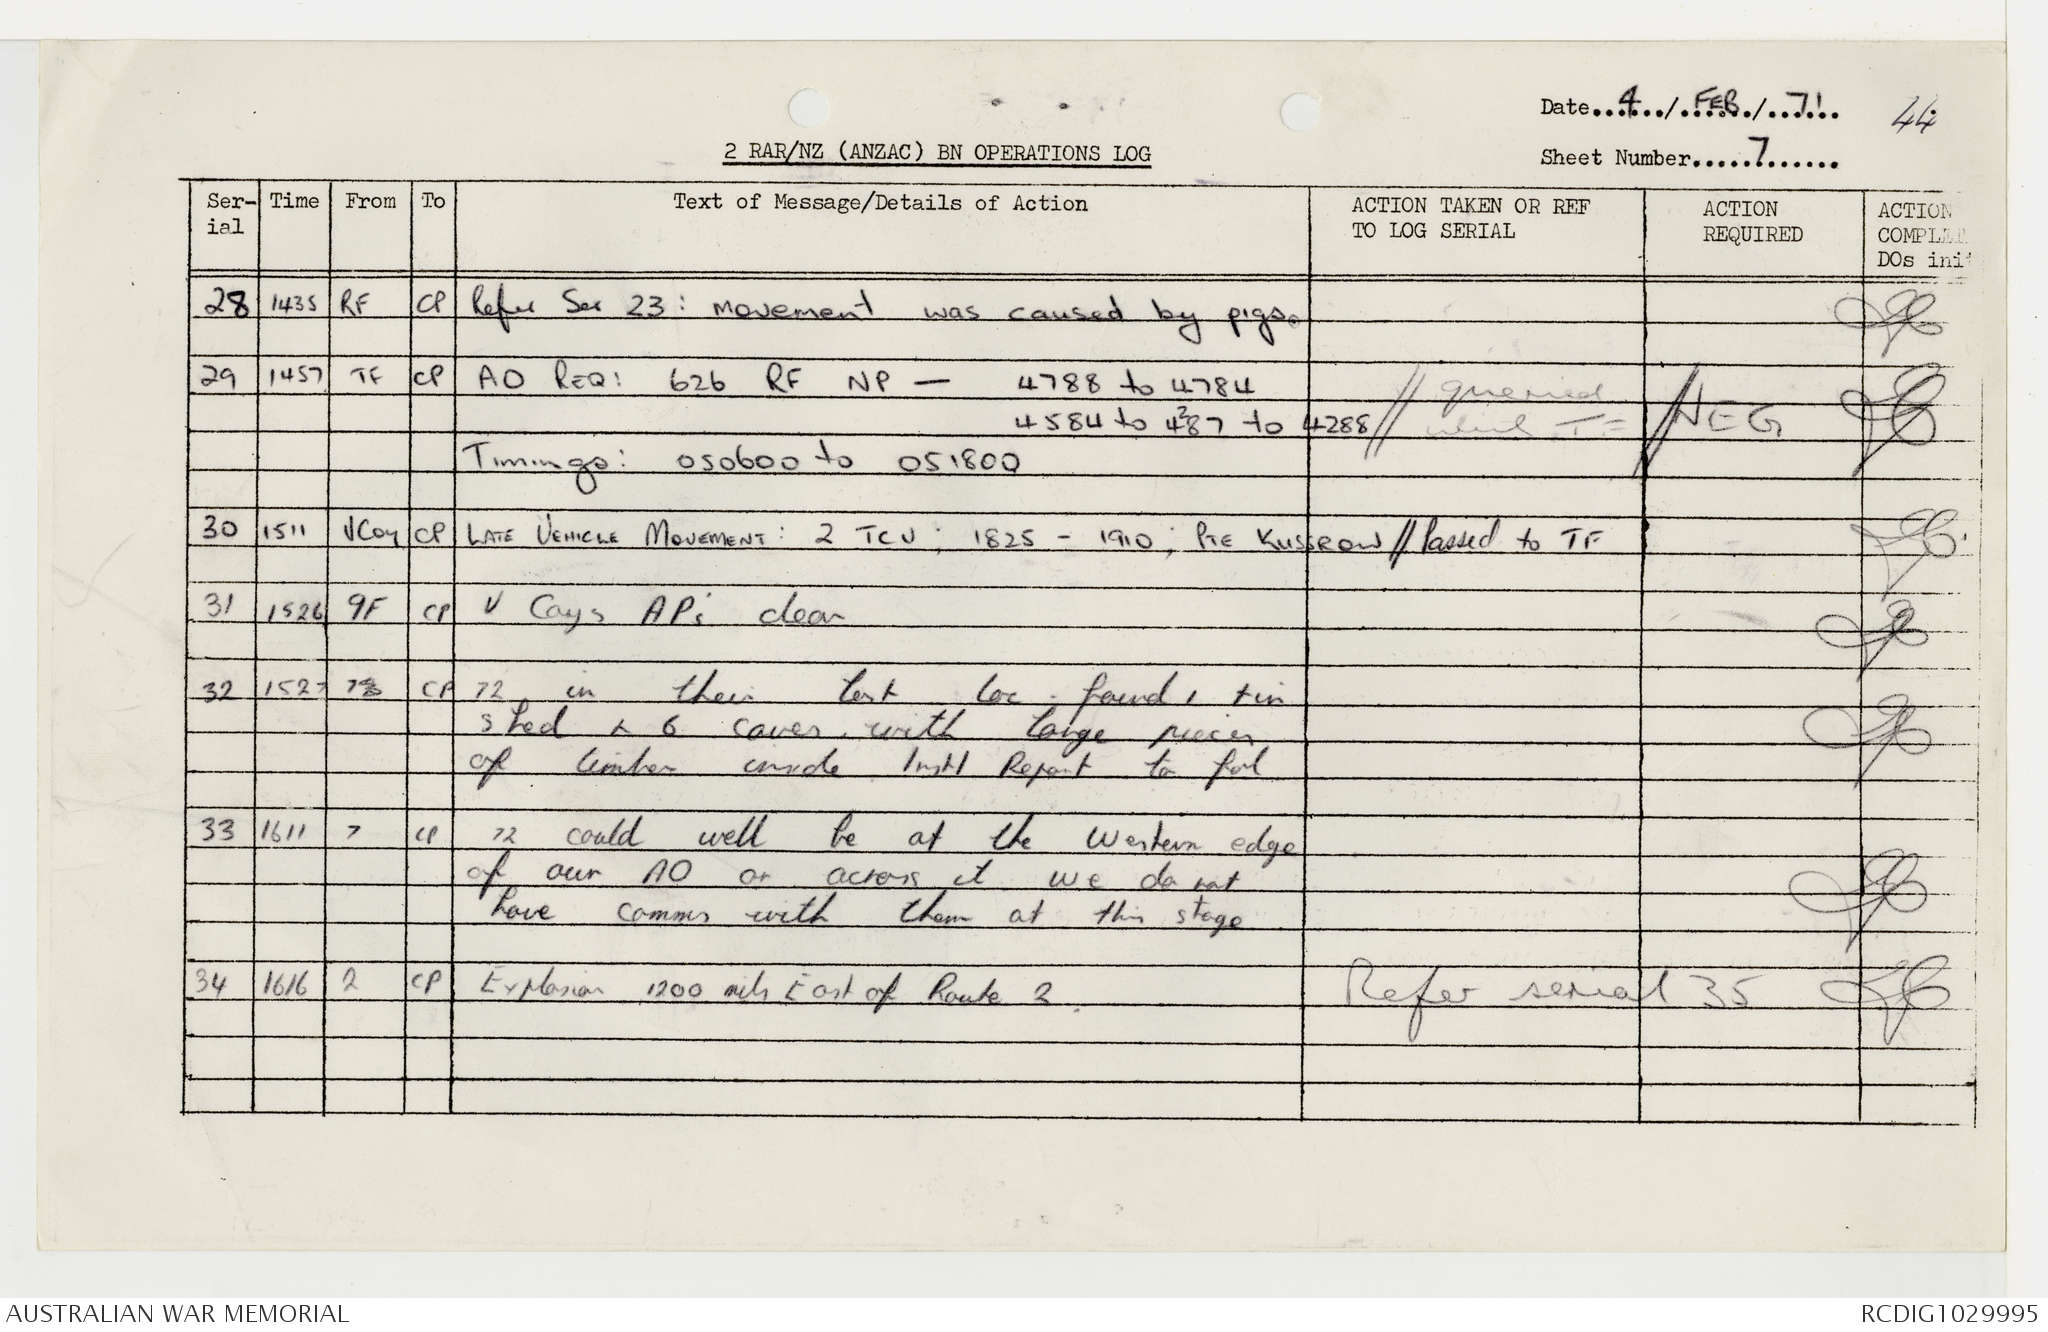 Date 4 / FEB / 71 44
2 RAR/NZ (ANZAC) BN OPERATIONS LOG
Sheet Number 7
Ser-ial Time From To Text of Message/Details of Action ACTION TAKEN OR REF TO LOG SERIAL ACTION REQUIRED ACTION COMPLET DOs init
28 1435 RF CP Refer Ser 23: movement was caused by pigs.
29 1457 TF CP AO REQ: 626 RF NP — 4788 to 4784 // queried
4584 to 4287 to 4288 with TF // NEG
Timings: 050600 to 051800
30 1511 VCoy CP LATE VEHICLE MOVEMENT: 2 TCV; 1825 - 1910; PTE KUSSROW // Passed to TF
31 1526 9F CP V Coys AP's clear
32 1527 CP 72 in their last loc found 1 tin
shed & 6 caves with large pieces
of timber inside Inst1 Report to fol
33 1611 7 CP 72 could well be at the Western edge
of our AO or across it we do not
have comms with them at this stage
34 1616 2 CP Explosion 1200 mils East of Route 2 Refer serial 35
AUSTRALIAN WAR MEMORIAL RCDIG1029995